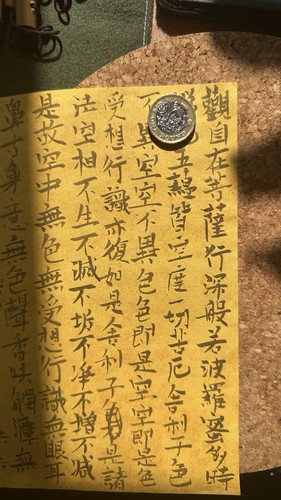 觀自在菩薩行深般若波羅蜜多時
五蘊皆空度一切苦厄舍利子色
不異空空不異色色即是空空即是色
受想行識亦復如是舍利子是諸
法空相不生不滅不垢不净不增不减
是故空中無色無受想行識無眼耳
鼻舌身意無色聲香味觸法無